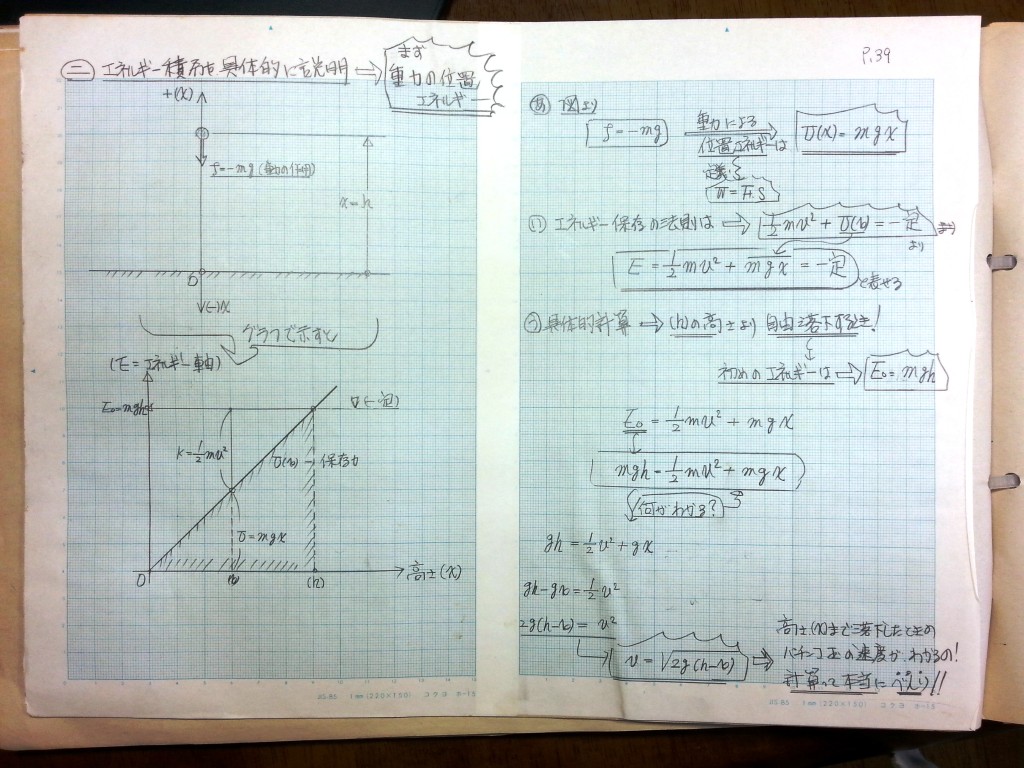 ㊁ エネルギー積分を具体的に説明 ⇒
まず
重力の位置
エネルギー
+(x)
f=-mg (重力の作用)
x=h
O
(-)x
グラフで示すと
(E=エネルギー軸)
E₀=mgh
(一定)
K=½mv²
U(x) 保存力
U=mgx
O
(x)
(h)
高さ(x)
P.39
㋐ 図より
f=-mg
重力による
位置エネルギーは
U(x)=mgx
定義は
W=F.S
㋑ エネルギー保存の法則は ⇒ ½mv²+U(x)=一定
より
E=½mv²+mgx=一定
と表せる
㋒ 具体的計算 ⇒ (h)の高さより 自由落下するとき!
初めのエネルギーは ⇒ E₀=mgh
E₀=½mv²+mgx
mgh=½mv²+mgx
何がわかる?
gh=½v²+gx
gh-gx=½v²
2g(h-x)=v²
v=√2g(h-x) ⇒
高さ(x)まで落下したときの
パチンコ玉の速度が、わかるの!
計算って本当に
JIS B5 1mm(220×150) コクヨ ホ-15
JIS B5 1mm(220×150) コクヨ ホ-15